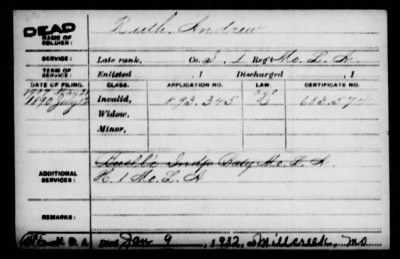 DEAD
NAME OF SOLDIER: Bueth, Andrew
SERVICE: Late rank, Co. I, 1 Reg't Mo. L. A.
TERM OF SERVICE: Enlisted , 1 Discharged , 1
DATE OF FILING. CLASS. APPLICATION NO. LAW. CERTIFICATE NO.
1890 July Invalid, 893.345 683.574
Widow,
Minor,
ADDITIONAL SERVICES: Buell's Indp Baty Mo. L. A
H. 1 Mo. L. A
REMARKS:
Died Jan 9, 1932, at Millcreek, Mo